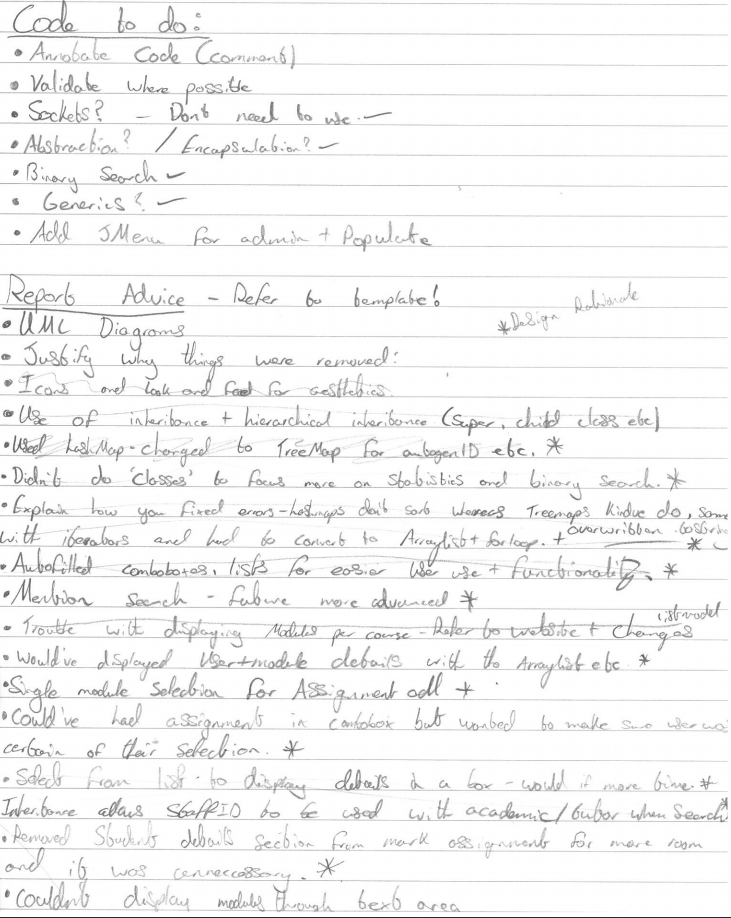 Code to do:
• Annotate Code (comment)
• Validate where possible
• Sockets? – Don't need to use. ✓
• Abstraction? / Encapsulation? ✓
• Binary Search ✓
• Generics? ✓
• Add JMenu for admin + Populate
Report Advice – Refer to template!
*Design Rationale
• UML Diagrams
• Justify why things were removed:
• Icons and look and feel for aesthetics.
• Use of inheritance + hierarchical inheritance (Super, child class etc)
• Used hashMap - changed to TreeMap for autogenID etc. *
• Didn't do 'Classes' to focus more on statistics and binary search. *
• Explain how you fixed errors - hashmaps don't sort whereas Treemaps kindve do, same
with iterators and had to convert to Arraylist + for loop. + overwritten tostring *
• Autofilled comboboxes, lists for easier user use + functionality. *
• Mention search - future more advanced *
• Trouble with displaying Modules per course - Refer to website + changes listmodel
• Would've displayed User + module details with the Arraylist etc. *
• Single module selection for Assignment add *
• Could've had assignment in combobox but wanted to make sure user was
certain of their selection. *
• Select from list to display details in a box - would if more time. *
Inheritance allows StaffID to be used with academic/tutor when search *
• Removed Student details section from mark assignment for more room
and it was unneccessary. *
• Couldn't display modules through text area